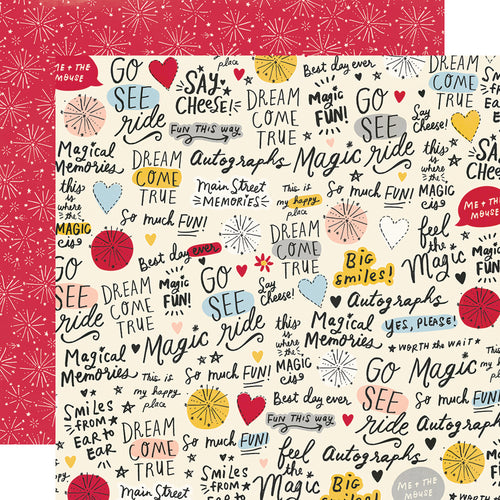 ME + THE
MOUSE
GO
SEE
ride
SAY
CHEESE!
place
Best day ever
DREAM
COME
TRUE
Magic
FUN!
GO
SEE
ride
DREAM
COME
TRUE
Say
Cheese!
FUN THIS WAY
Magical
Memories
DREAM
COME
TRUE
Autographs
Magic
this
is
where
the
MAGIC
is
Main Street
MEMORIES
This is
my happy
place
So much FUN!
this
is
where
the
MAGIC
is
ME + THE
MOUSE
So much FUN!
feel
the
Magic
Best day ever
DREAM
COME
TRUE
BIG
Smiles!
GO
SEE
ride
DREAM
COME
TRUE
Magic
FUN!
Say
Cheese!
Autographs
So much FUN!
Magical
Memories
YES, PLEASE!
Magic
this
is
where
the
MAGIC
is
WORTH THE WAIT
Magical
Memories
This is
my happy
place
So much FUN!
GO
SEE
ride
DREAM
COME
TRUE
Smiles
FROM
EAR to
EAR
Best day ever
FUN THIS WAY
Autographs
DREAM
COME
TRUE
So much FUN!
feel
the
Magic
So much FUN!
SAY
CHEESE!
BIG
Smiles!
ME + THE
MOUSE
Main Street
Autographs